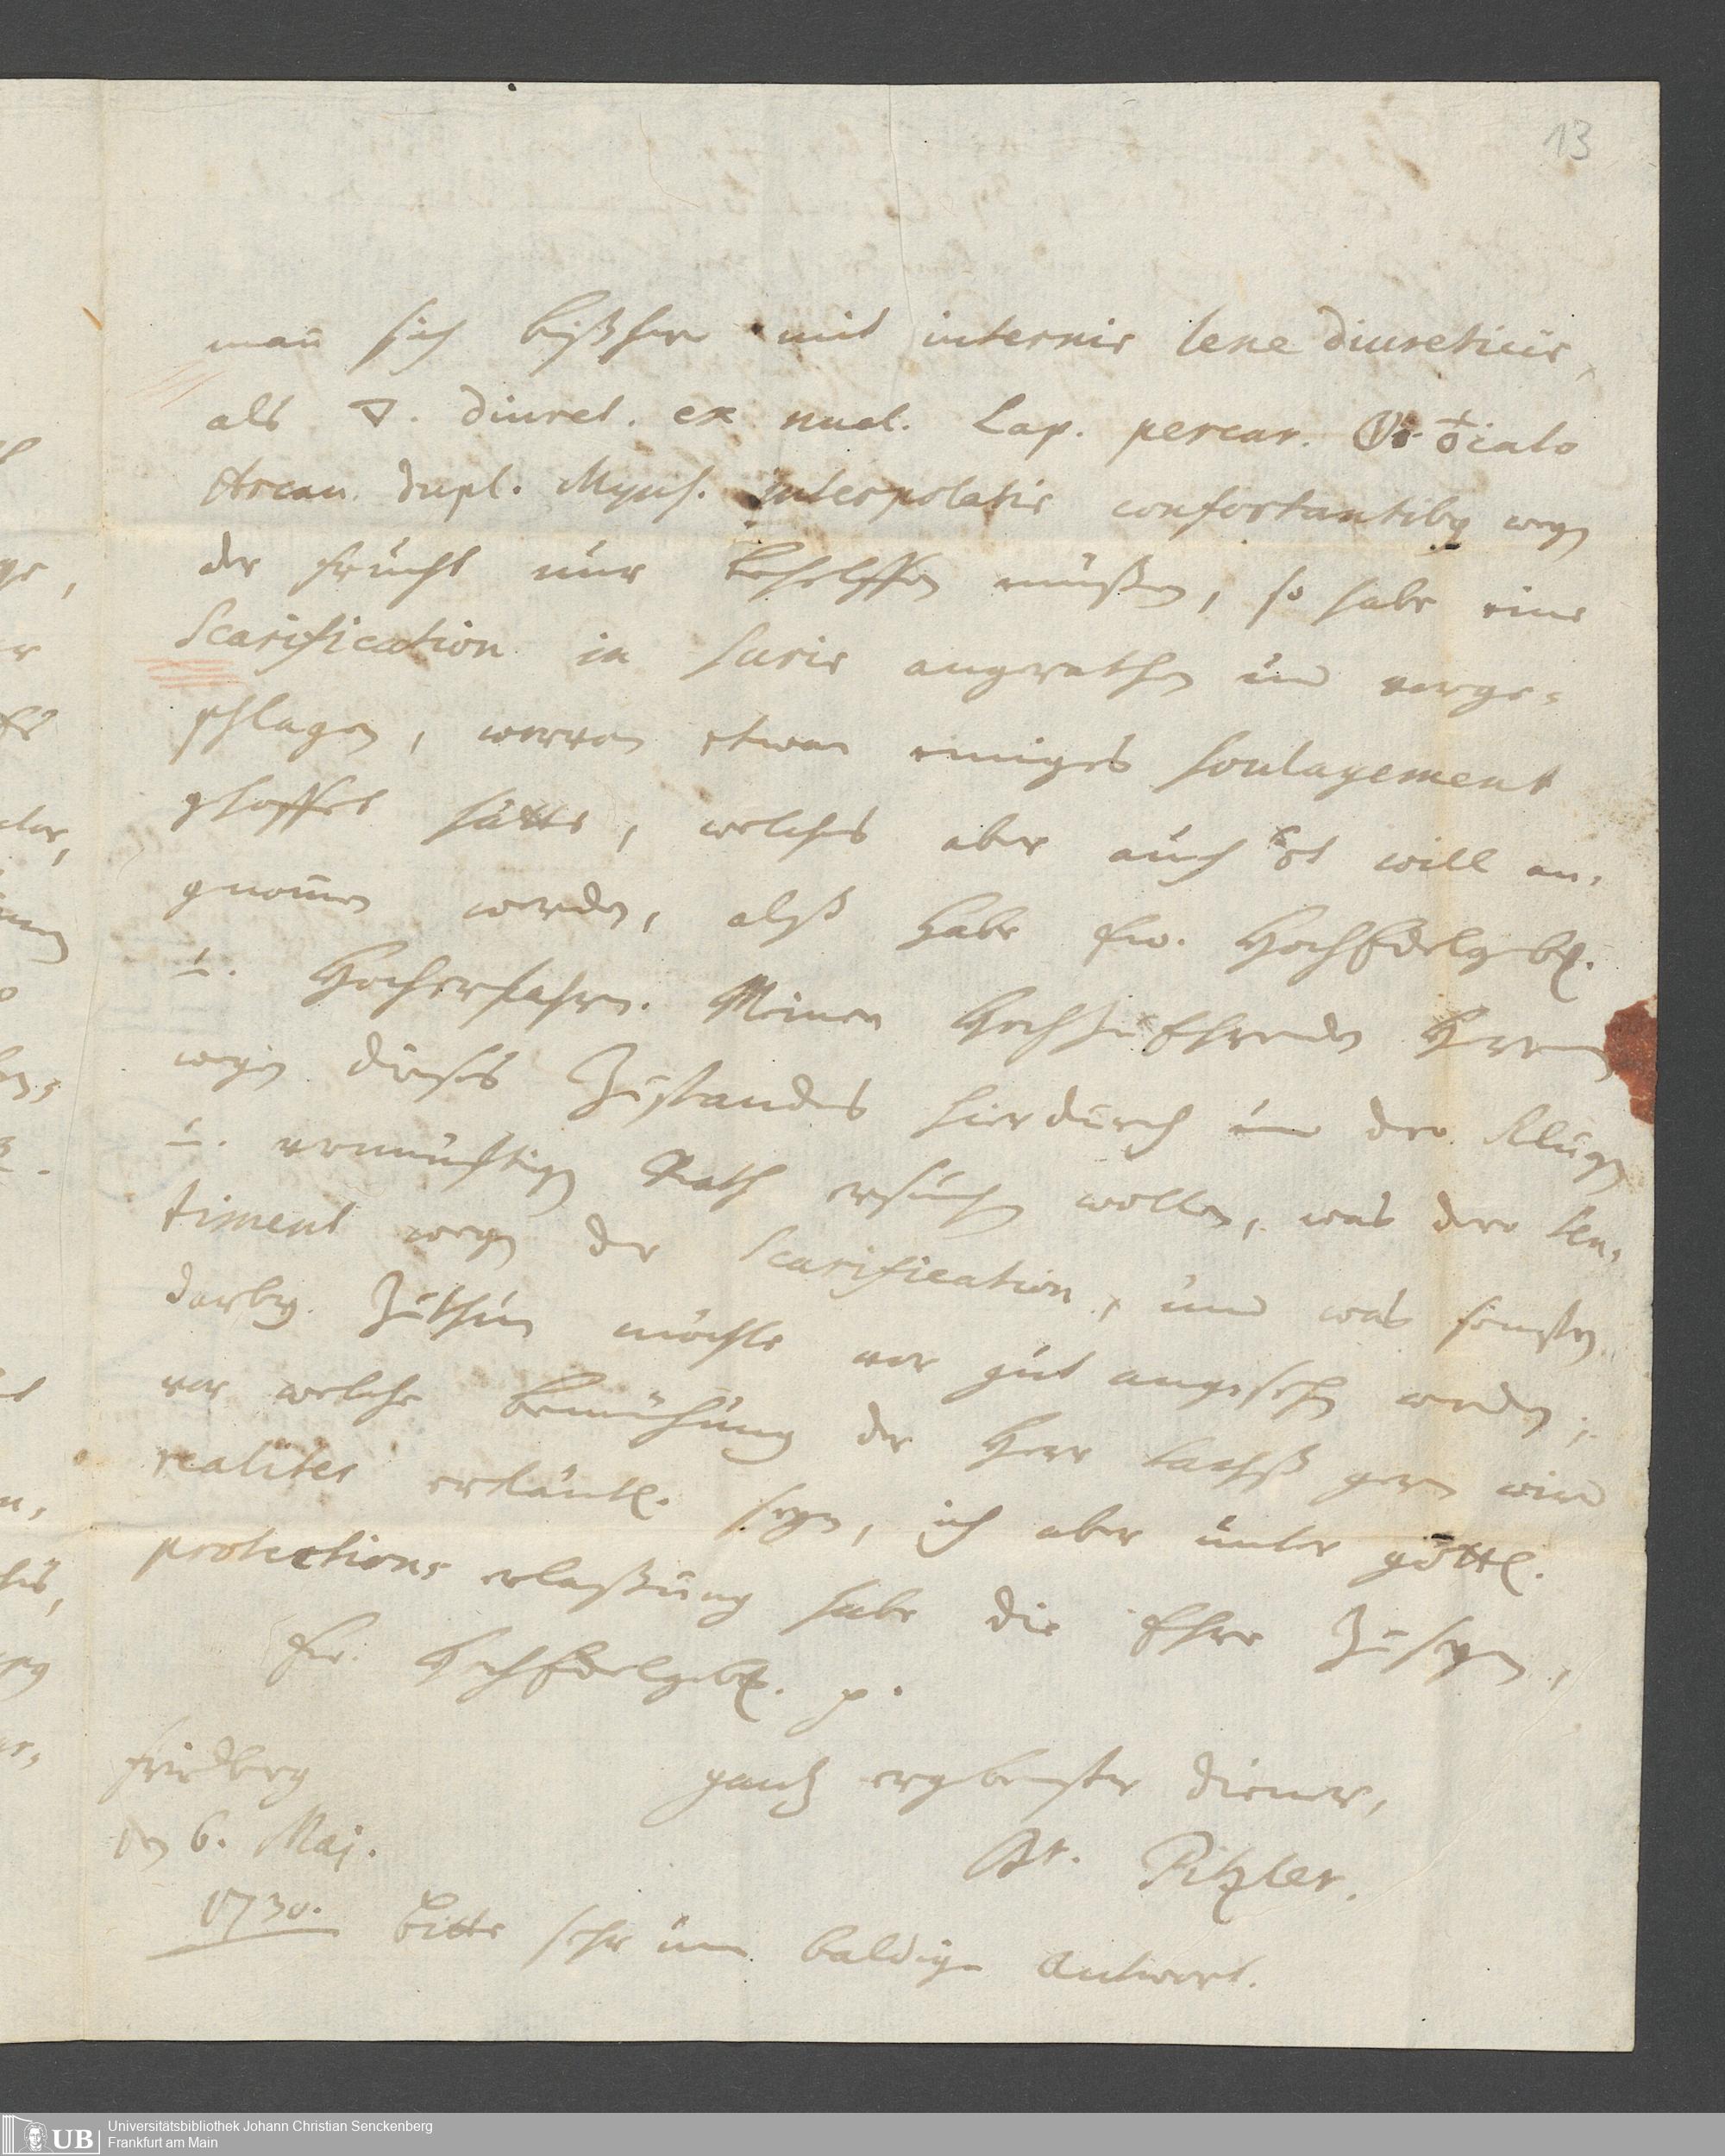 13
man̄ sich bißher mit internis lene diureticis,
als ▽. diuret. ex nucl. Lap. percar. 🜕 ♁iato
Arcan. dupl. Myns. interpolatis confortantibq wegen
der frucht nur behelffen müßen, so habe eine
Scarification in suris angerathen und vorge-
schlagen, worvon etwan einiges soulagement
gehoffet hätte, welches aber auch will an-
genom̄en werden, alß habe Ew. HochEdelgeb.
u. Hocherfahren. Meinen HochzuEhrenden Herren
wegen dießes Zustandes hierdurch um dero klugen
u. vernünftigen Rath ersuchen wollen, was dero sen-
timent wegen der Scarification, und was sonsten
darbey zuthun möchte vor gut angesehen werden;
vor welche bemühung der Herr gern wird
realiter erkäntl. seyn, ich aber unter göttl.
protections erlaßung habe die Ehre zuseyn,
Ew. HochEdelgeb. p.
Friedberg
gantz ergebenster diener,
den 6. Maj.
Dr. Pitzler.
1730.
bitte sehr um baldige antwort.
UB Universitätsbibliothek Johann Christian Senckenberg
Frankfurt am Main